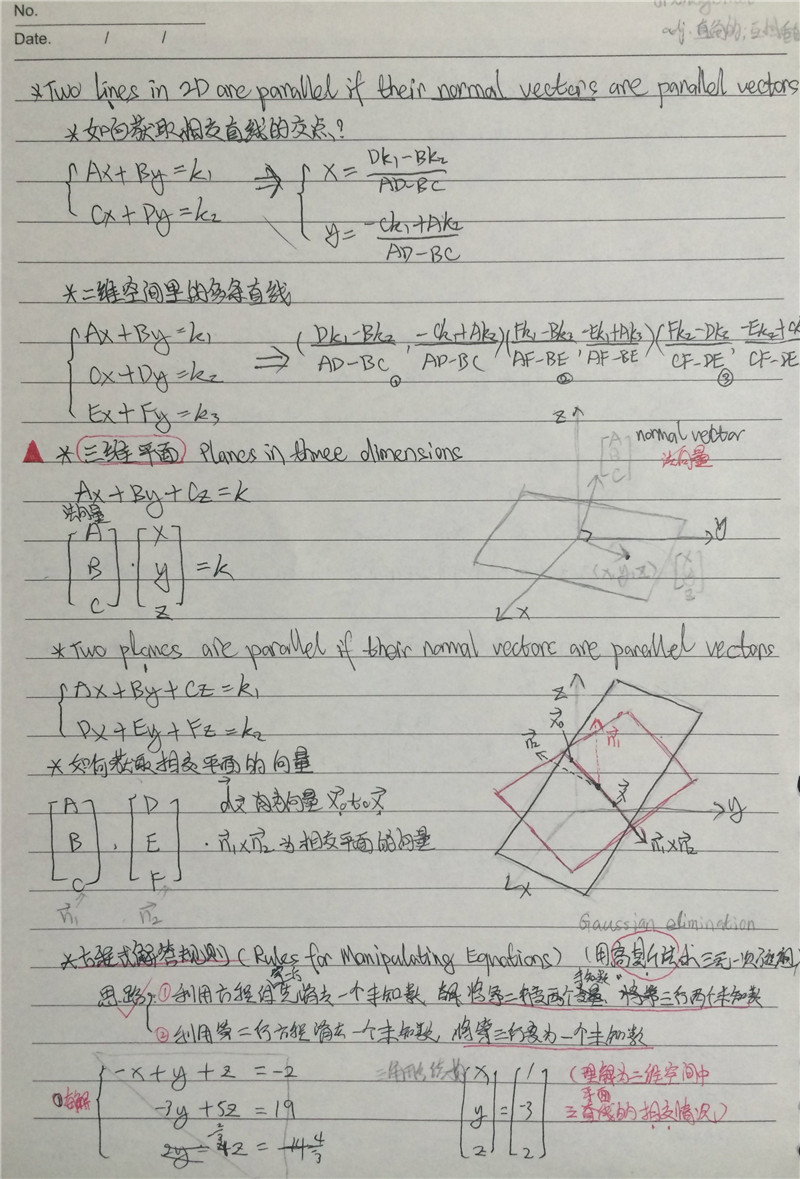 No.
Date. / /
adj. 直角的;互相垂
*Two lines in 2D are parallel if their normal vectors are parallel vectors
*如何获取相交直线的交点?
Ax+By=k₁ ⇒ x= Dk₁-Bk₂ / AD-BC
Cx+Dy=k₂ y= -Ck₁+Ak₂ / AD-BC
*二维空间里的多条直线
Ax+By=k₁
Cx+Dy=k₂ ⇒ (Dk₁-Bk₂ / AD-BC, -Ck₁+Ak₂ / AD-BC)① (Fk₁-Bk₃ / AF-BE, -Ek₁+Ak₃ / AF-BE)② (Fk₂-Dk₃ / CF-DE, -Ek₂+Ck / CF-DE ③
Ex+Fy=k₃
*三维平面 Planes in three dimensions
Ax+By+Cz=k
法向量
[A B C]·[x y z]=k
z
[A B C] normal vector
法向量
y
(x,y,z) [x y z]
x
*Two planes are parallel if their normal vectors are parallel vectors
Ax+By+Cz=k₁
Dx+Ey+Fz=k₂
*如何获取相交平面的向量
[A B C], [D E F]
n₁ n₂
d 向量 x₀ to x
·n₁×n₂ 为相交平面的向量
z
x₀
n₂ n₁
x
y
n₁×n₂
x
Gaussian elimination
*方程式解答规则(Rules for Manipulating Equations) (用高斯 三元一次方程
思路:①利用方程 消去一个未知数, 将第二 两个 将第三行两个未知数
②利用第二行方程消去一个未知数,将第三行变为一个未知数
-x+y+z=-2
①有解 -3y+5z=19 [x y z]=[1 -3 2]
2/3 z = 4/3
(理解为三维空间中
平面
三 的相交情况)